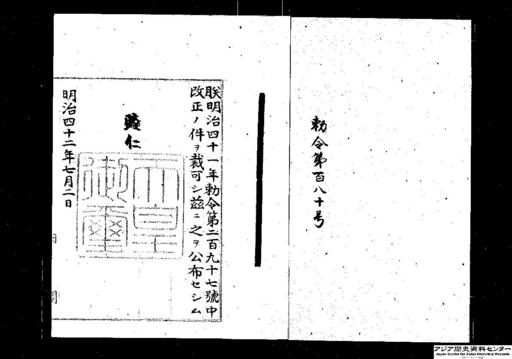 勅令第百八十号
朕明治四十一年勅令第二百九十七號中
改正ノ件ヲ裁可シ茲ニ之ヲ公布セシム
睦仁
天皇御璽
明治四十二年七月二日
内閣
アジア歴史資料センター
Japan Center for Asian Historical Records